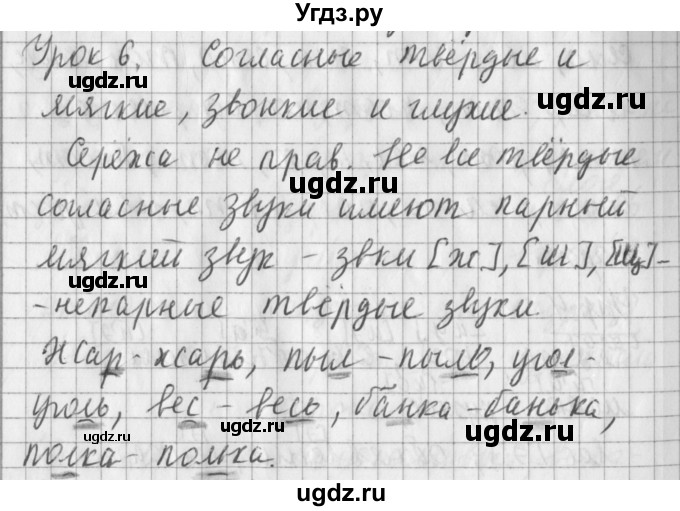 Угдз.ру
Урок 6. Согласные твёрдые и
ugdz.ru ugdz.ru
мягкие, звонкие и глухие.
ugdz.ru
Серёжа не прав. Не все твёрдые
ugdz.ru
согласные звуки имеют парный
мягкий звук – звки [ж], [ш], [ц] –
ugdz.ru ugdz.ru
- непарные твёрдые звуки.
ugdz.ru
Жар - жарь, пыл - пыль, угол -
уголь, вес - весь, банка - банька,
ugdz.ru ugdz.ru
полка - полька.
ugdz.ru
ugdz.ru